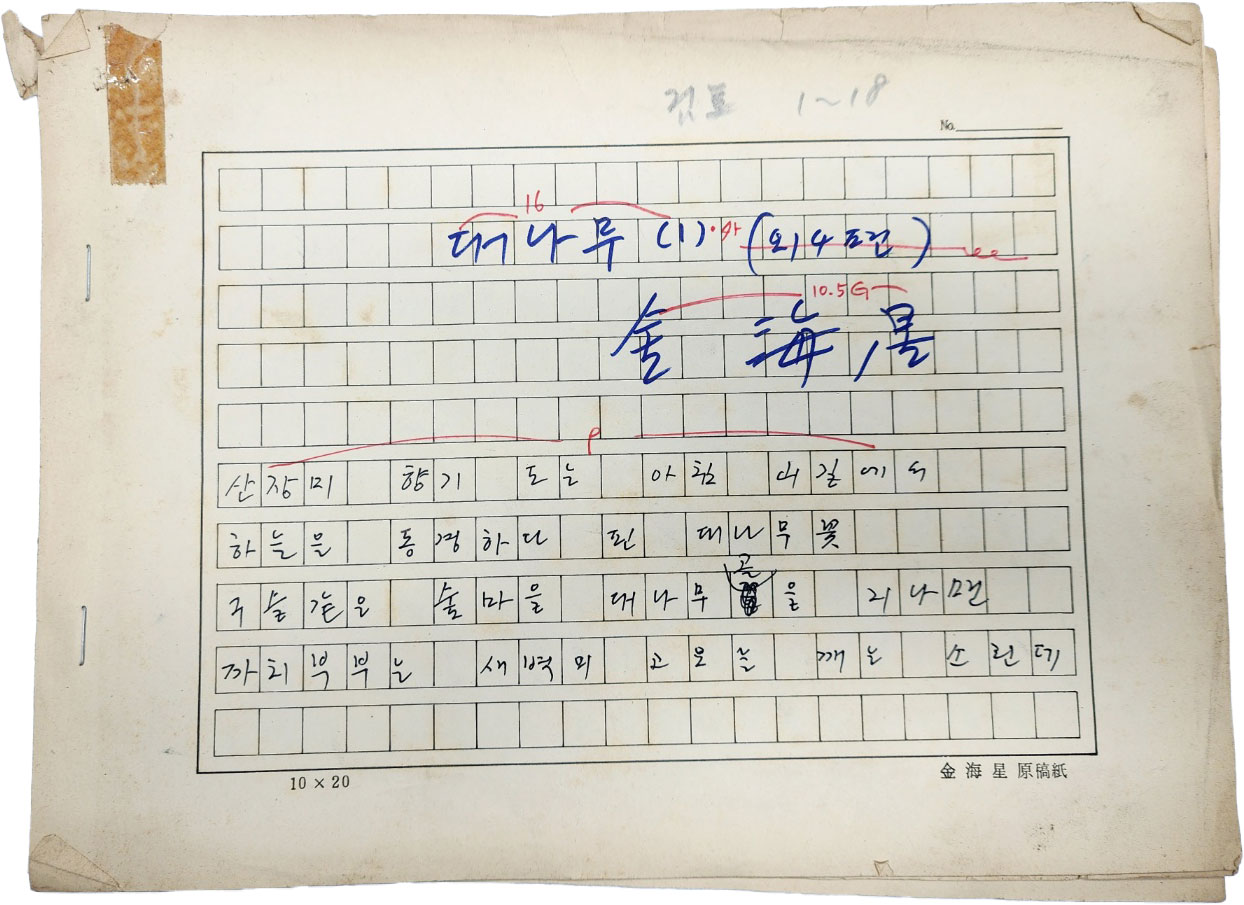 검토 1~18
No.
16
대나무 (1) (외 4편)
10.5G
金 海 星
산장미 향기 도는 아침
하늘을 동경하다 핀 대나무꽃
골
구슬같은 숲마을 대나무 을 지나면
까치부부는 새벽의 고요를 깨는 소린데
10 × 20
金海星原稿紙